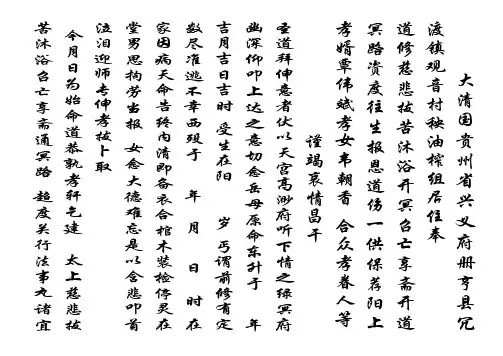 大清国贵州省兴义府册亨县冗
渡镇观音村秧油榨组居住奉
道修慈悲拔苦沐浴开冥召亡享斋开道
冥路资度往生报恩道伤一供保荐阳上
孝婿覃伟斌孝女韦朝香 合众孝眷人等
谨竭哀情昌干
圣道拜伸意者伏以天宫高渺府听下情之绿冥府
幽深仰叩上达之意切念岳母原命东升于 年
吉月吉日吉时 受生在阳 岁丐谓前修有定
数尽准逃不幸西殁于 年 月 日 时在
家因病天命告终内清即备衣合棺木装检停灵在
堂男思拘劳当报 女念大德难忘是以含悲叩首
泣泪迎师专伸孝拔卜取
今月日为始命道恭孰孝轩乞建 太上慈悲拔
苦沐浴召亡享斋通冥路 超度关行法事九诸宜